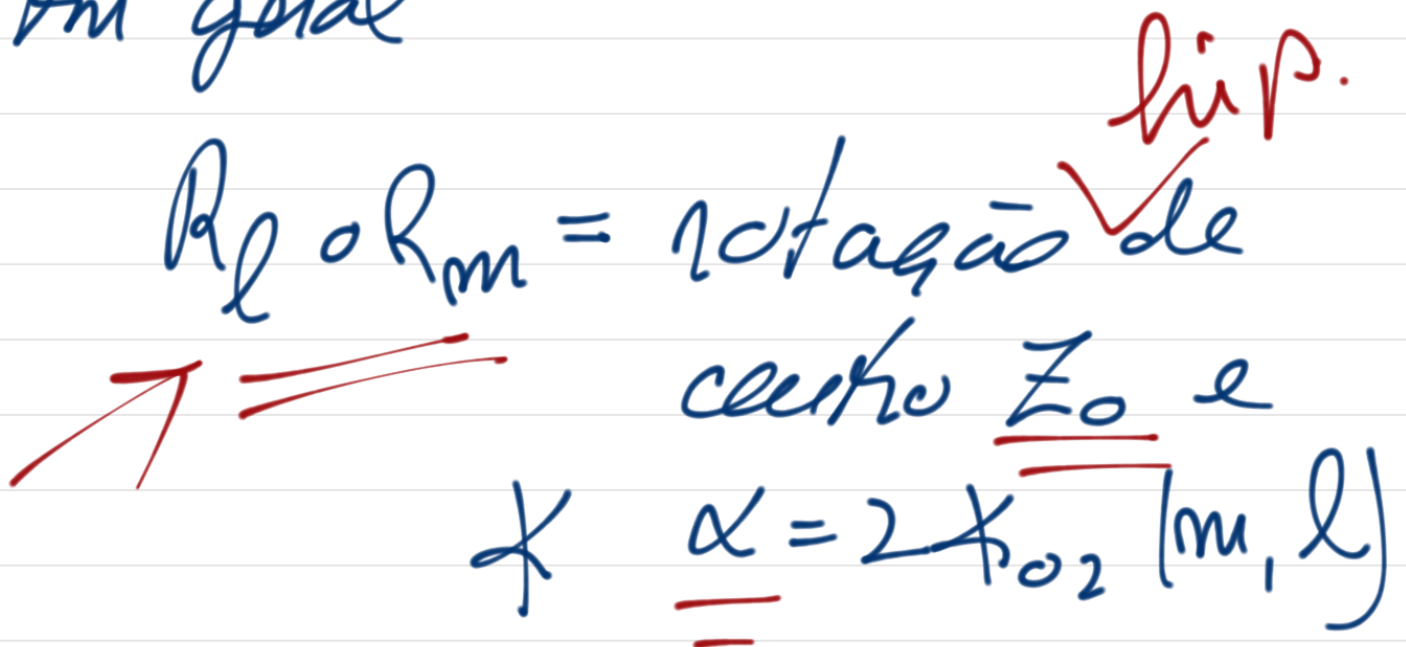 Em geral
hip.
R_l o R_m = rotação de
centro Z_0 e
∡ α = 2∡_{02} (m, l)